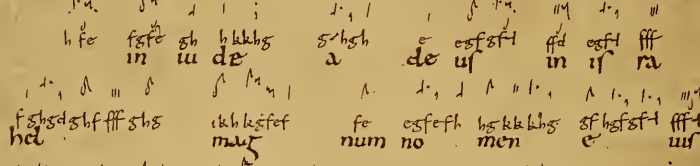 h fe fgfe gh hkkhg g hgh e egfgfd ffd egfd fff
in iu de a de uſ in iſ ra
fghgdghf fff ghg ikh kgfef fe egfefh hgkkkhg gfhgfgfd fffd
hel mag num no men e iuſ